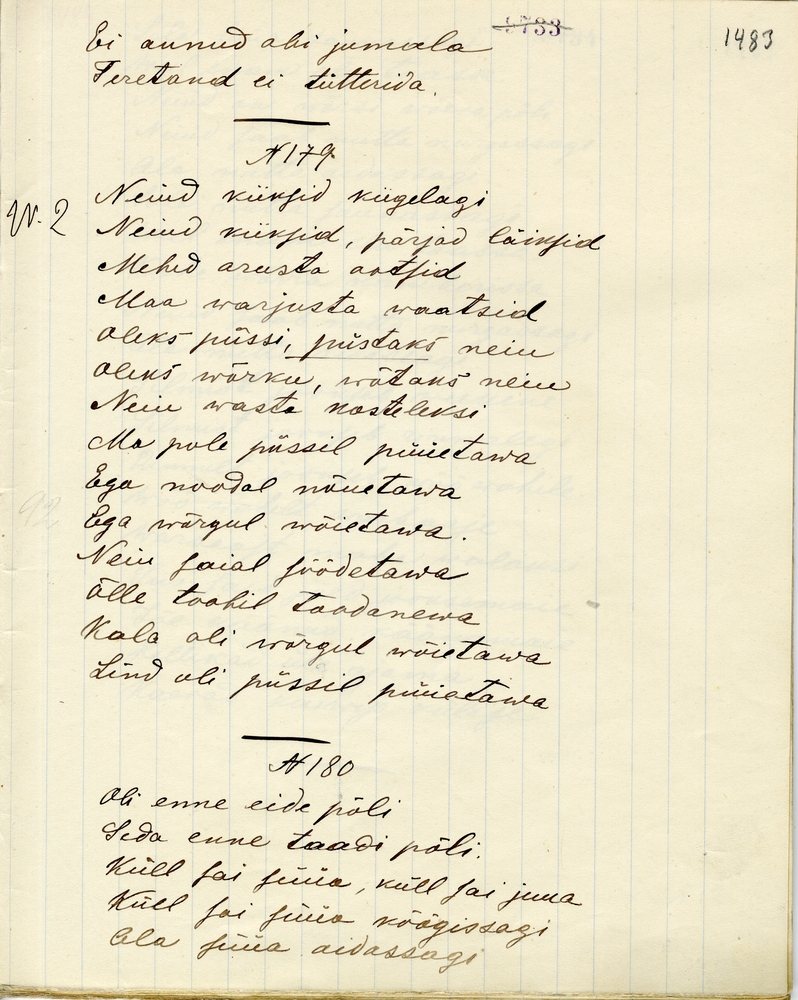 9733
1483
Ei annud abi jumala
Teretand ei tütterida.
N 179.
W. 2
Neiud kiiksid kiigelagi
Neiud kiiksid, pärjad läiksid
Mehed arusta ootsid
Maa warjusta waatsid
Oleks püssi, püstaks neiu
Oleks wõrku, wõtaks neiu
Neiu wasta kosteleksi
Ma pole püssil püüetawa
Ega noodal nõuetawa
Ega wõrgul wõietawa.
Neiu saial söödetawa
Õlle toobil toodanewa
Kala oli wõrgul wõietawa
Lind oli püssil püüetawa
N 180
Oli enne eide põli
Seda enne taadi põli.
Küll sai süüa, küll sai juua
Küll sai süüa köögissagi
Ala süüa aidassagi
92